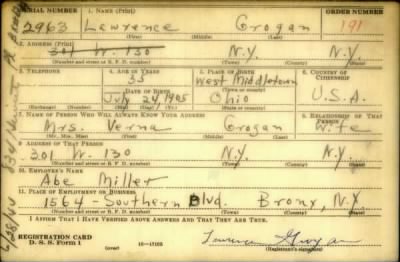 SERIAL NUMBER 1. NAME (Print) ORDER NUMBER
2963 Lawrence Grogan 191
(First) (Middle) (Last)
2. ADDRESS (Print)
301 W. 130 N.Y. N.Y.
(Number and street or R. F. D. number) (Town) (County) (State)
3. TELEPHONE 4. AGE IN YEARS 5. PLACE OF BIRTH 6. COUNTRY OF CITIZENSHIP
35 West Middletown
DATE OF BIRTH
July 24, 1905 Ohio U.S.A.
(Exchange) (Number) (Mo.) (Day) (Yr.) (State or country)
7. NAME OF PERSON WHO WILL ALWAYS KNOW YOUR ADDRESS 8. RELATIONSHIP OF THAT PERSON
Mrs. Verna Grogan Wife
(Mr., Mrs., Miss) (First) (Middle) (Last)
9. ADDRESS OF THAT PERSON
301 W. 130 N.Y. N.Y.
(Number and street or R. F. D. number) (Town) (County) (State)
10. EMPLOYER'S NAME
Abe Miller
11. PLACE OF EMPLOYMENT OR BUSINESS
1564 - Southern Blvd. Bronx, N.Y
(Number and street or R. F. D. number) (Town) (County) (State)
I AFFIRM THAT I HAVE VERIFIED ABOVE ANSWERS AND THAT THEY ARE TRUE.
REGISTRATION CARD
D. S. S. Form 1 (over) 16-17105 Lawrence Grogan
(Registrant's signature)